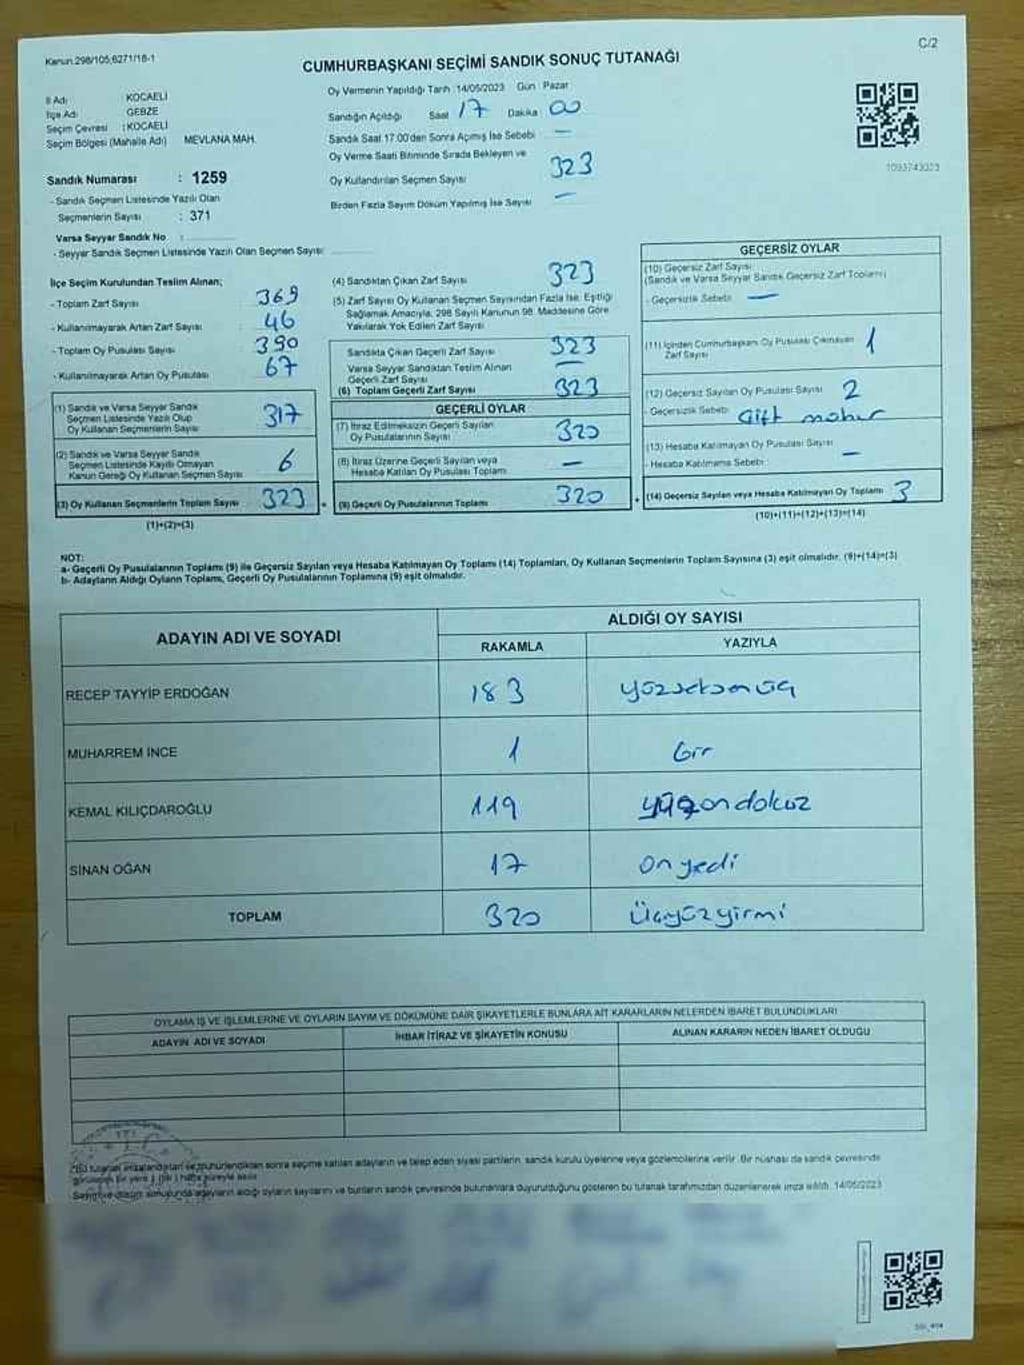 Kanun.298/105;6271/18-1
C/2
CUMHURBAŞKANI SEÇİMİ SANDIK SONUÇ TUTANAĞI
İl Adı : KOCAELİ
İlçe Adı : GEBZE
Seçim Çevresi : KOCAELİ
Seçim Bölgesi (Mahalle Adı) MEVLANA MAH.
Sandık Numarası : 1259
- Sandık Seçmen Listesinde Yazılı Olan
Seçmenlerin Sayısı : 371
Varsa Seyyar Sandık No :
- Seyyar Sandık Seçmen Listesinde Yazılı Olan Seçmen Sayısı:
Oy Vermenin Yapıldığı Tarih :14/05/2023 Gün : Pazar
Sandığın Açıldığı Saat 17 Dakika 00
Sandık Saat 17.00'den Sonra Açılmış İse Sebebi —
Oy Verme Saati Bitiminde Sırada Bekleyen ve
Oy Kullandırılan Seçmen Sayısı 323
Birden Fazla Sayım Döküm Yapılmış İse Sayısı —
1093743023
İlçe Seçim Kurulundan Teslim Alınan;
- Toplam Zarf Sayısı 369
- Kullanılmayarak Artan Zarf Sayısı 46
- Toplam Oy Pusulası Sayısı 390
- Kullanılmayarak Artan Oy Pusulası 67
(1) Sandık ve Varsa Seyyar Sandık
Seçmen Listesinde Yazılı Olup
Oy Kullanan Seçmenlerin Sayısı 317
(2) Sandık ve Varsa Seyyar Sandık
Seçmen Listesinde Kayıtlı Olmayan
Kanun Gereği Oy Kullanan Seçmen Sayısı 6
(3) Oy Kullanan Seçmenlerin Toplam Sayısı 323
(1)+(2)=(3)
(4) Sandıktan Çıkan Zarf Sayısı 323
(5) Zarf Sayısı Oy Kullanan Seçmen Sayısından Fazla İse; Eşitliği
Sağlamak Amacıyla, 298 Sayılı Kanunun 98. Maddesine Göre
Yakılarak Yok Edilen Zarf Sayısı
Sandıkta Çıkan Geçerli Zarf Sayısı 323
Varsa Seyyar Sandıktan Teslim Alınan
Geçerli Zarf Sayısı —
(6) Toplam Geçerli Zarf Sayısı 323
GEÇERLİ OYLAR
(7) İtiraz Edilmeksizin Geçerli Sayılan
Oy Pusulalarının Sayısı 320
(8) İtiraz Üzerine Geçerli Sayılan veya
Hesaba Katılan Oy Pusulası Toplamı —
(9) Geçerli Oy Pusulalarının Toplamı 320
GEÇERSİZ OYLAR
(10) Geçersiz Zarf Sayısı
(Sandık ve Varsa Seyyar Sandık Geçersiz Zarf Toplamı)
- Geçersizlik Sebebi: —
(11) İçinden Cumhurbaşkanı Oy Pusulası Çıkmayan
Zarf Sayısı 1
(12) Geçersiz Sayılan Oy Pusulası Sayısı 2
- Geçersizlik Sebebi: Çift mühür
(13) Hesaba Katılmayan Oy Pusulası Sayısı
- Hesaba Katılmama Sebebi : —
(14) Geçersiz Sayılan veya Hesaba Katılmayan Oy Toplamı 3
(10)+(11)+(12)+(13)=(14)
NOT:
a- Geçerli Oy Pusulalarının Toplamı (9) ile Geçersiz Sayılan veya Hesaba Katılmayan Oy Toplamı (14) Toplamları, Oy Kullanan Seçmenlerin Toplam Sayısına (3) eşit olmalıdır. (9)+(14)=(3)
b- Adayların Aldığı Oyların Toplamı, Geçerli Oy Pusulalarının Toplamına (9) eşit olmalıdır.
ADAYIN ADI VE SOYADI ALDIĞI OY SAYISI
RAKAMLA YAZIYLA
RECEP TAYYİP ERDOĞAN 183 yüzseksenüç
MUHARREM İNCE 1 bir
KEMAL KILIÇDAROĞLU 119 yüzondokuz
SİNAN OĞAN 17 on yedi
TOPLAM 320 Üçyüzyirmi
OYLAMA İŞ VE İŞLEMLERİNE VE OYLARIN SAYIM VE DÖKÜMÜNE DAİR ŞİKAYETLERLE BUNLARA AİT KARARLARIN NELERDEN İBARET BULUNDUKLARI
ADAYIN ADI VE SOYADI İHBAR İTİRAZ VE ŞİKAYETİN KONUSU ALINAN KARARIN NEDEN İBARET OLDUĞU
T.C.
İşbu tutanak imzalandıktan ve mühürlendikten sonra seçime katılan adayların ve talep eden siyasi partilerin, sandık kurulu üyelerine veya gözlemcilerine verilir. Bir nüshası da sandık çevresinde
görülecek bir yere 1 (bir) hafta süreyle asılır.
Sayım ve döküm sonucunda adayların aldığı oyların sayılarını ve bunların sandık çevresinde bulunanlara duyurulduğunu gösteren bu tutanak tarafımızdan düzenlenerek imza edildi. 14/05/2023